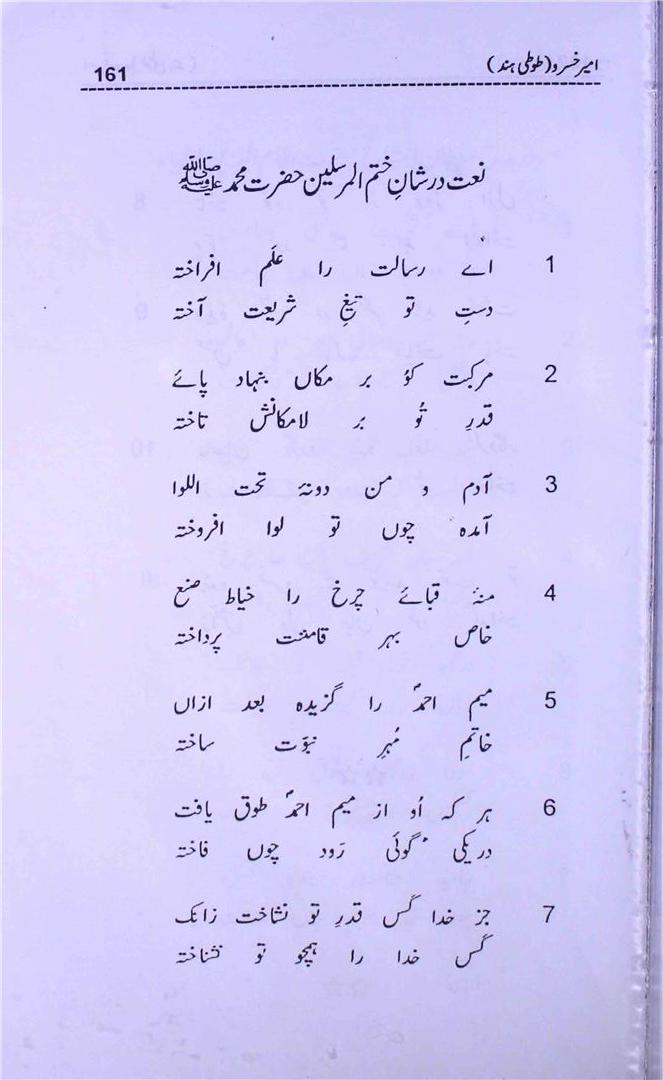 امیر خسرو (طوطیٔ ہند)
161
نعت در شانِ ختم المرسلین حضرت محمد ﷺ
1 اے رسالت را علَم افراختہ
دستِ تو تیغِ شریعت آختہ
2 مرکبت کوٗ بر مکاں بنہاد پائے
قدرِ تُو بر لامکانش تاختہ
3 آدم و من دونہٗ تحت اللوا
آمدہ چوں تو لوا افروختہ
4 منہٗ قبائے چرخ را خیاط صنع
خاص بہر قامتت پرداختہ
5 میم احمدؐ را گزیدہ بعد ازاں
خاتمِ مُہرِ نبوّت ساختہ
6 ہر کہ اُو از میم احمدؐ طوق یافت
در یکی گوئی رَود چوں فاختہ
7 جز خدا کَس قدرِ تو نشناخت زانک
کَس خدا را ہمچو تو نشناختہ